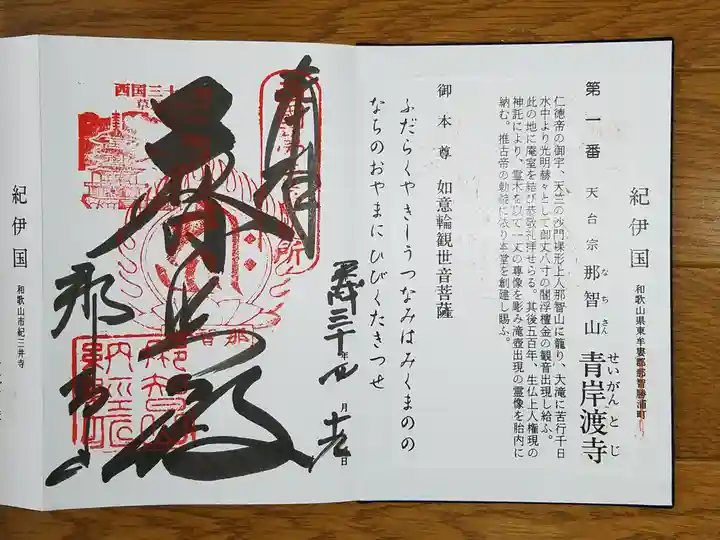 紀伊国
和歌山県東牟婁郡那智勝浦町
第一番 天台宗 那智山 青岸渡寺
なち さん せいがんとじ
仁徳帝の御宇、天竺の沙門裸形上人那智山に籠り、大滝に苦行千日
水中より光明赫々として御丈八寸の閻浮檀金の観音出現し給ふ。
此の地に庵室を結び恭敬礼拝せらる。其後五百年、生仏上人権現の
神託により、霊木を以て一丈の尊像を彫み滝壺出現の霊像を胎内に
納む。推古帝の勅願に依り本堂を創建し賜ふ。
御本尊 如意輪観世音菩薩
ふだらくやきしうつなみはみくまのの
なちのおやまにひびくたきつせ
奉拝
西国三十
草
平成三十年
月
日
那智山
納経所
紀伊国
和歌山市紀三井寺